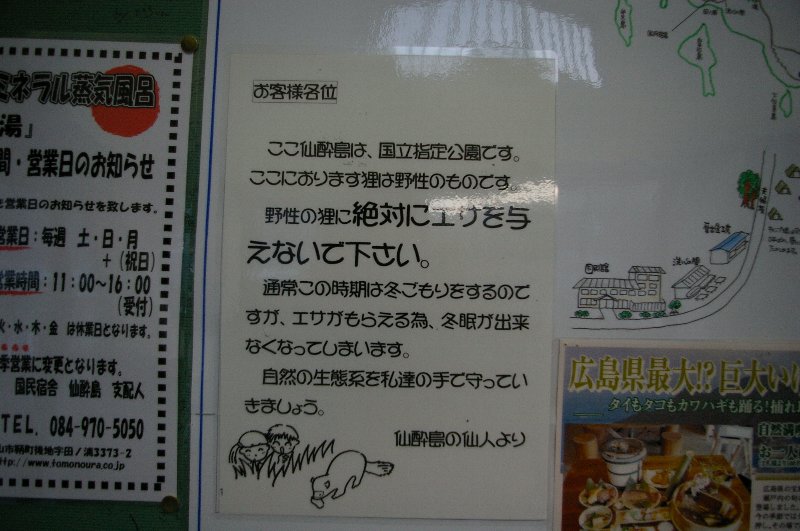 ミネラル蒸気風呂
湯』
間・営業日のお知らせ
営業日のお知らせを致します。
営業日：毎週 土・日・月
＋(祝日)
営業時間：11:00～16:00
(受付)
火・水・木・金 は休業日となります。
季営業に変更となります。
国民宿舎 仙酔島 支配人
TEL. 084-970-5050
山市鞆町後地字田ノ浦3373-2
http://www.tomonoura.co.jp
お客様各位
ここ仙酔島は、国立指定公園です。
ここにおります狸は野性のものです。
野性の狸に絶対にエサを与
えないで下さい。
通常この時期は冬ごもりをするので
すが、エサがもらえる為、冬眠が出来
なくなってしまいます。
自然の生態系を私達の手で守ってい
きましょう。
仙酔島の仙人より
広島県最大!?巨大い
タイもタコもカワハギも踊る!捕れ
自然満
お二人